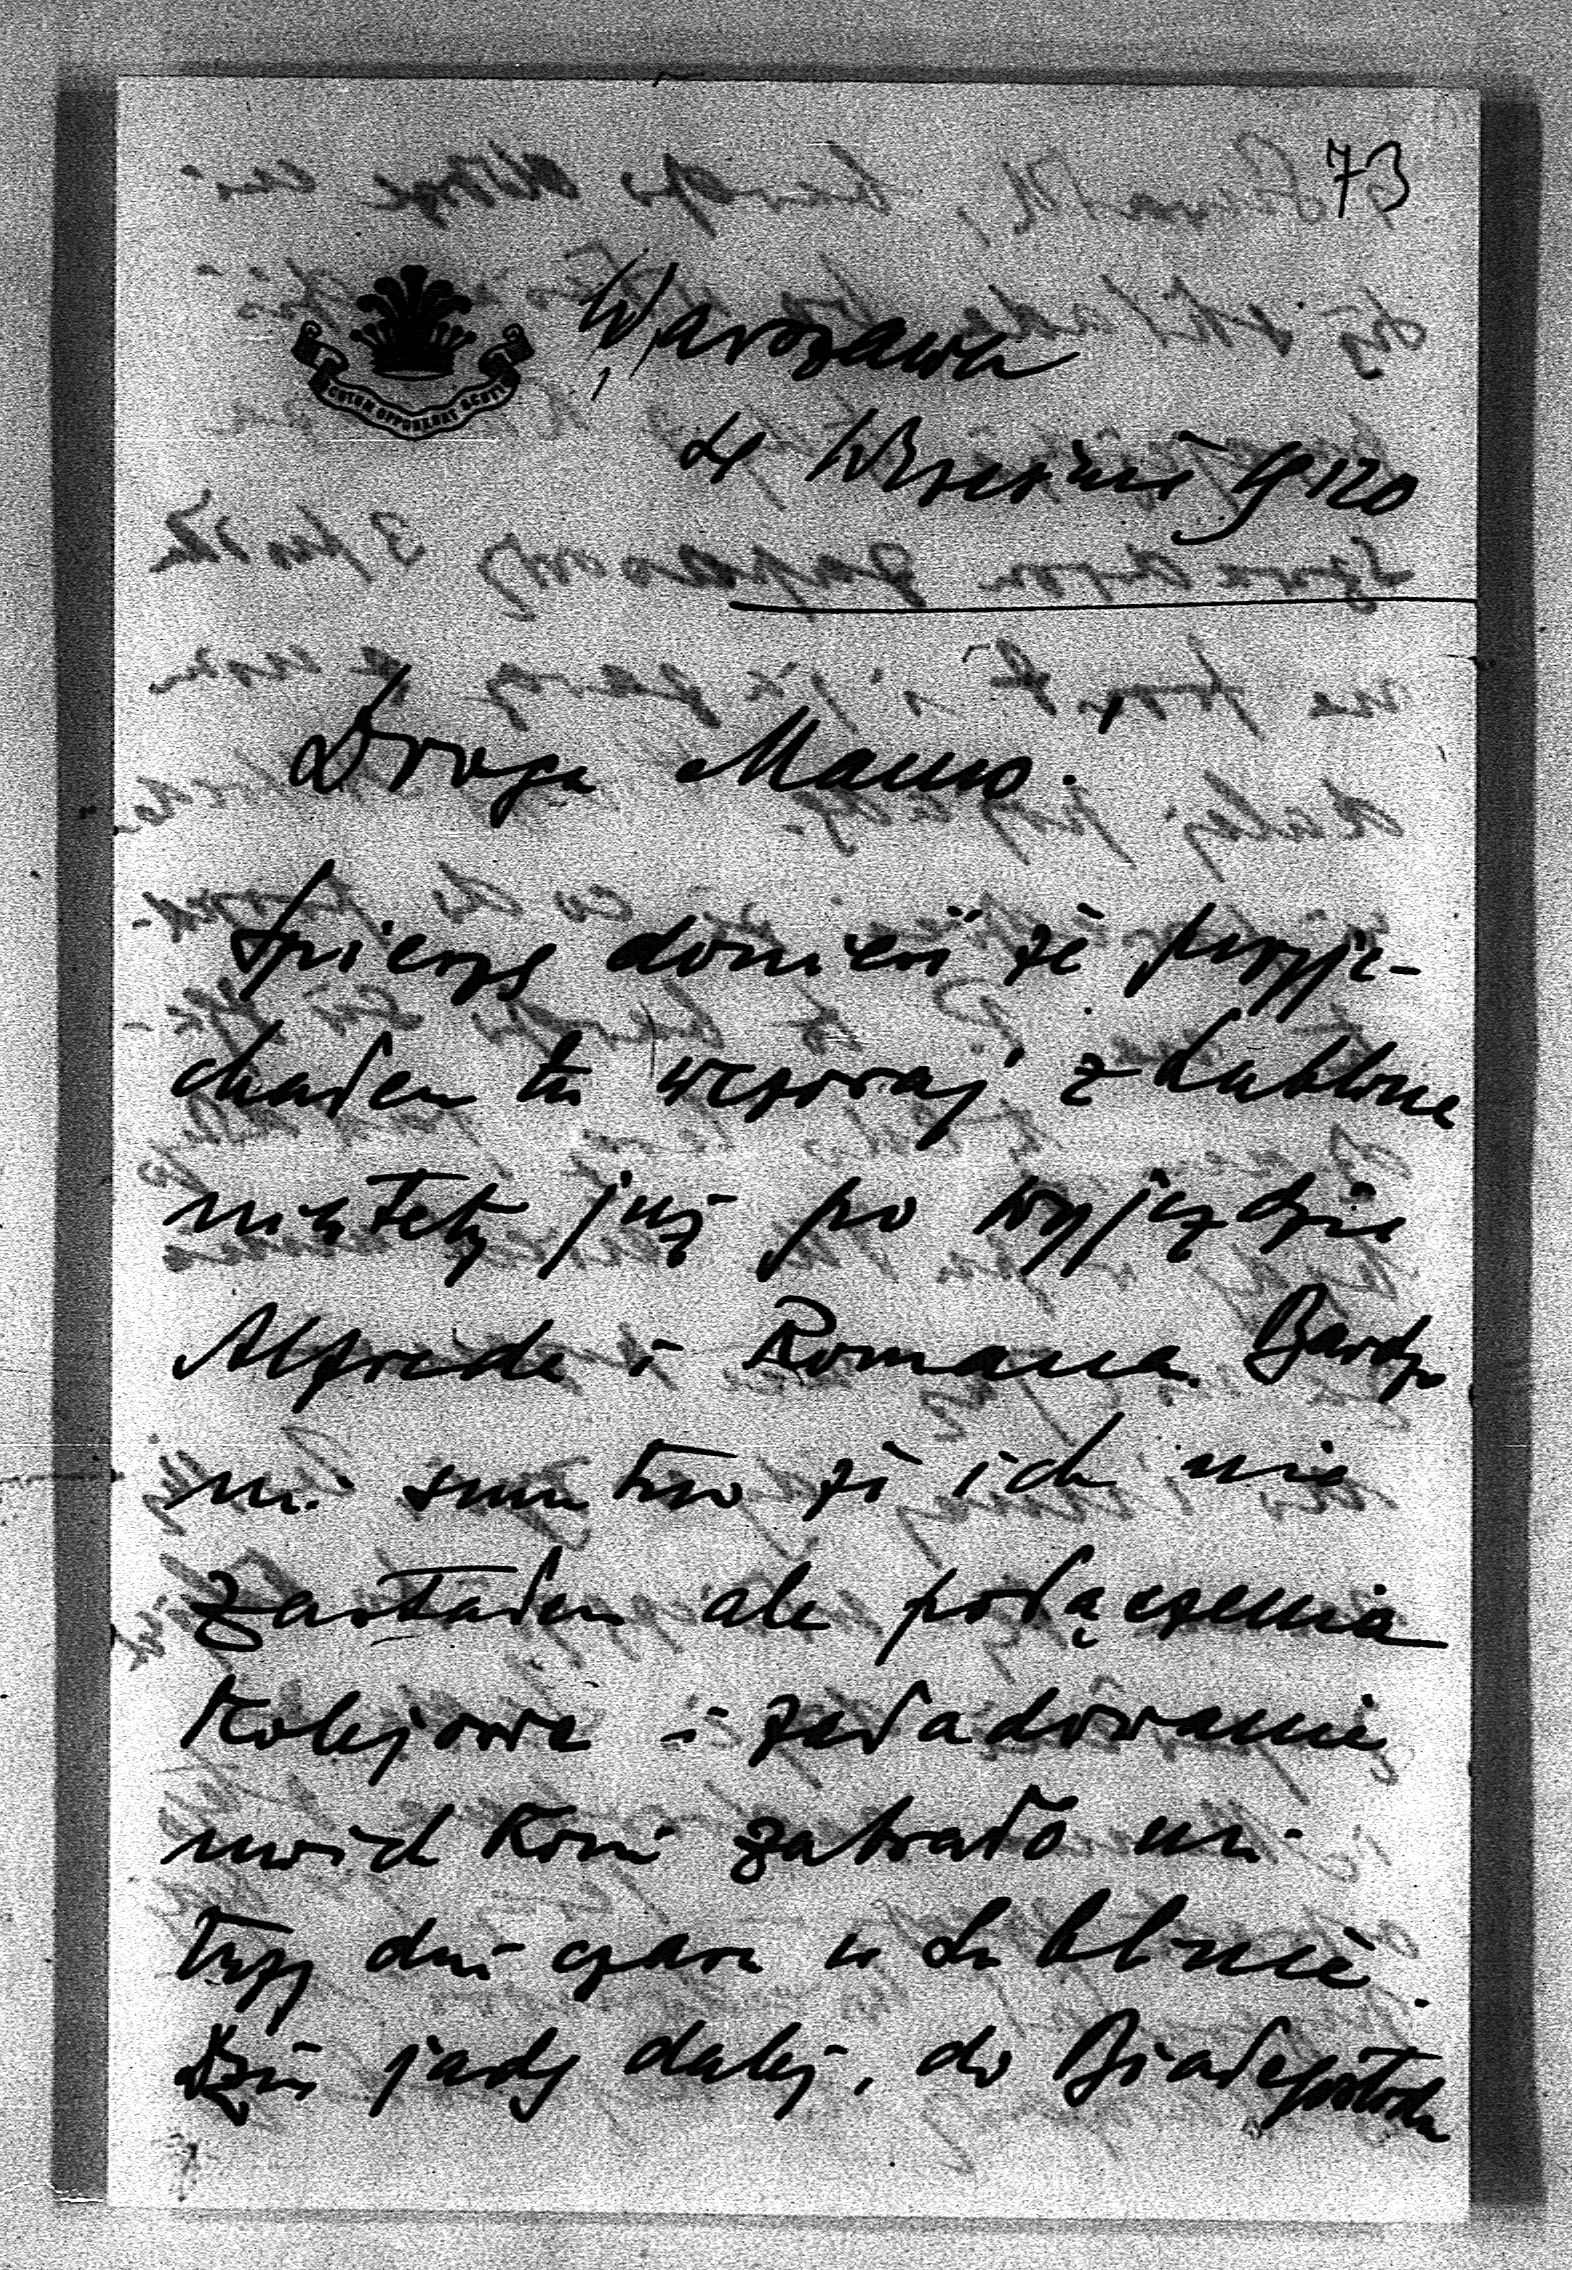 73
SCUTUM OPPONEBAT SCUTIS
Warszawa
4 Września 920
Droga Mamo.
Spieszę donieść że przyje-
chałem tu wczoraj z Lublina
niestety już po wyjeździe
Alfreda i Romana. Bardzo
mi smutno że ich nie
zastałem ale połączenia
Kolejowe i załadowanie
moich Koni zabrało mi
trzy dni czasu w Lublinie.
Dziś jadę dalej, do Białegostoku